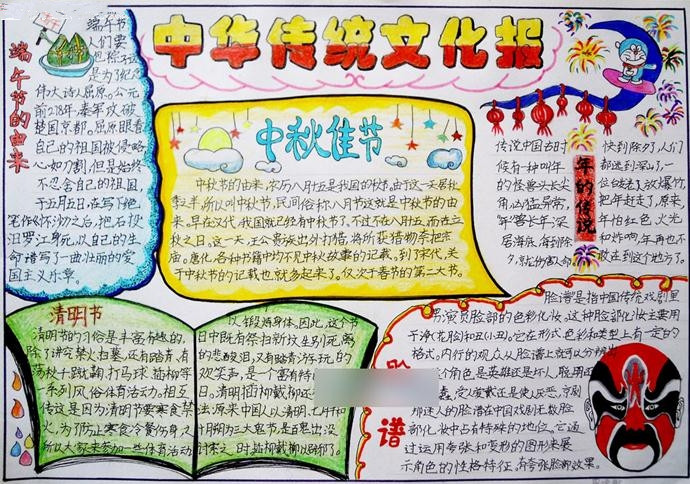 中华传统文化报
端午节的由来
端午节
人们要
是为了纪念
伟大诗人屈原。公元
前278年,秦军攻破
楚国京都。屈原眼看
自己的祖国被侵略
心如刀割,但是始终
不忍舍自己的祖国
于五月五日,在写下绝
笔作《怀沙》之后,抱石投
汨罗江身死,以自己的生
命谱写了一曲壮丽的爱
国主义乐章。
中秋佳节
中秋节的由来,农历八月十五是我国的
所以叫中秋节,民间俗称八月节这就是中秋节的由
来。早在汉代,我国就已经有中秋节了,不过不在八月十五,而在立
秋之日,这一天,王公贵族出外打猎,将所获猎物祭把宗
庙。唐代,各种书籍中均不见中秋故事的记载,到了宋代,关
于中秋节的记载也就多起来了。仅次于春节的第二大节。
年的传说
传说中国古时
候有一种叫年
的怪兽头长尖
角,凶猛异常,
年兽长年深
居海底,每到除
夕,
快到除夕人们
都逃到深山,一
位
把年赶走了,原来,
年怕红色,火光
和炸响,年再也不
敢到这个地方了。
清明节
清明节的习俗是丰富有趣的,
除了讲究禁火扫墓,还有踏青,荡
秋千踢蹴鞠打马球插柳等
一系列风俗体育活动。相
传这是因为清明节要寒食禁
火,为了防止寒食冷餐伤身,
所以大家来参加一些体育活动
以锻炼身体,因此,这个节
日中既有祭扫新坟生别死离
的悲酸泪,又有踏青游玩的
欢笑声,是一个富有特
清明插柳戴柳还
法:原来中国人以清明、七月半和
十月朔为三大鬼节,是百鬼出没
讨索之时插柳戴柳以辟邪了。
脸谱
脸谱是指中国传统戏剧里
男演员脸部的色彩化妆,这种脸部化妆主要用
于净(花脸)和丑(小丑),它在形式,色彩和类型上有一定的
格式。内行的观众从脸谱上就可以分辨出
角色是英雄还是坏人,聪明
受人爱戴还是使人厌恶,京剧
那迷人的脸谱在中国戏剧无数脸
部化妆中占有特殊的地位,它通
过运用夸张和变形的图形来展
示角色的性格特征,有夸张脸部效果。